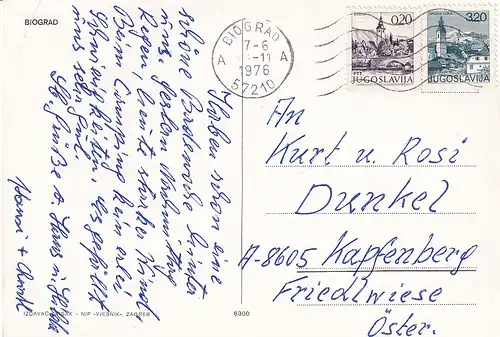 BIOGRAD
Haben schon eine
schöne Badewoche hinter
uns. Gestern Nachmittag
Regen, heute starker Wind.
Beim Camping kein
Schwierigkeiten, es gefällt
uns sehr gut.
BIOGRAD
7-6
-11
1976
A A
57210
0,20
JUGOSLAVIJA
3,20
JUGOSLAVIJA
An
Kurt u. Rosi
Dunkel
A-8605 Kapfenberg
Friedlwiese
Öster.
NIP «VJESNIK», ZAGREB
6300